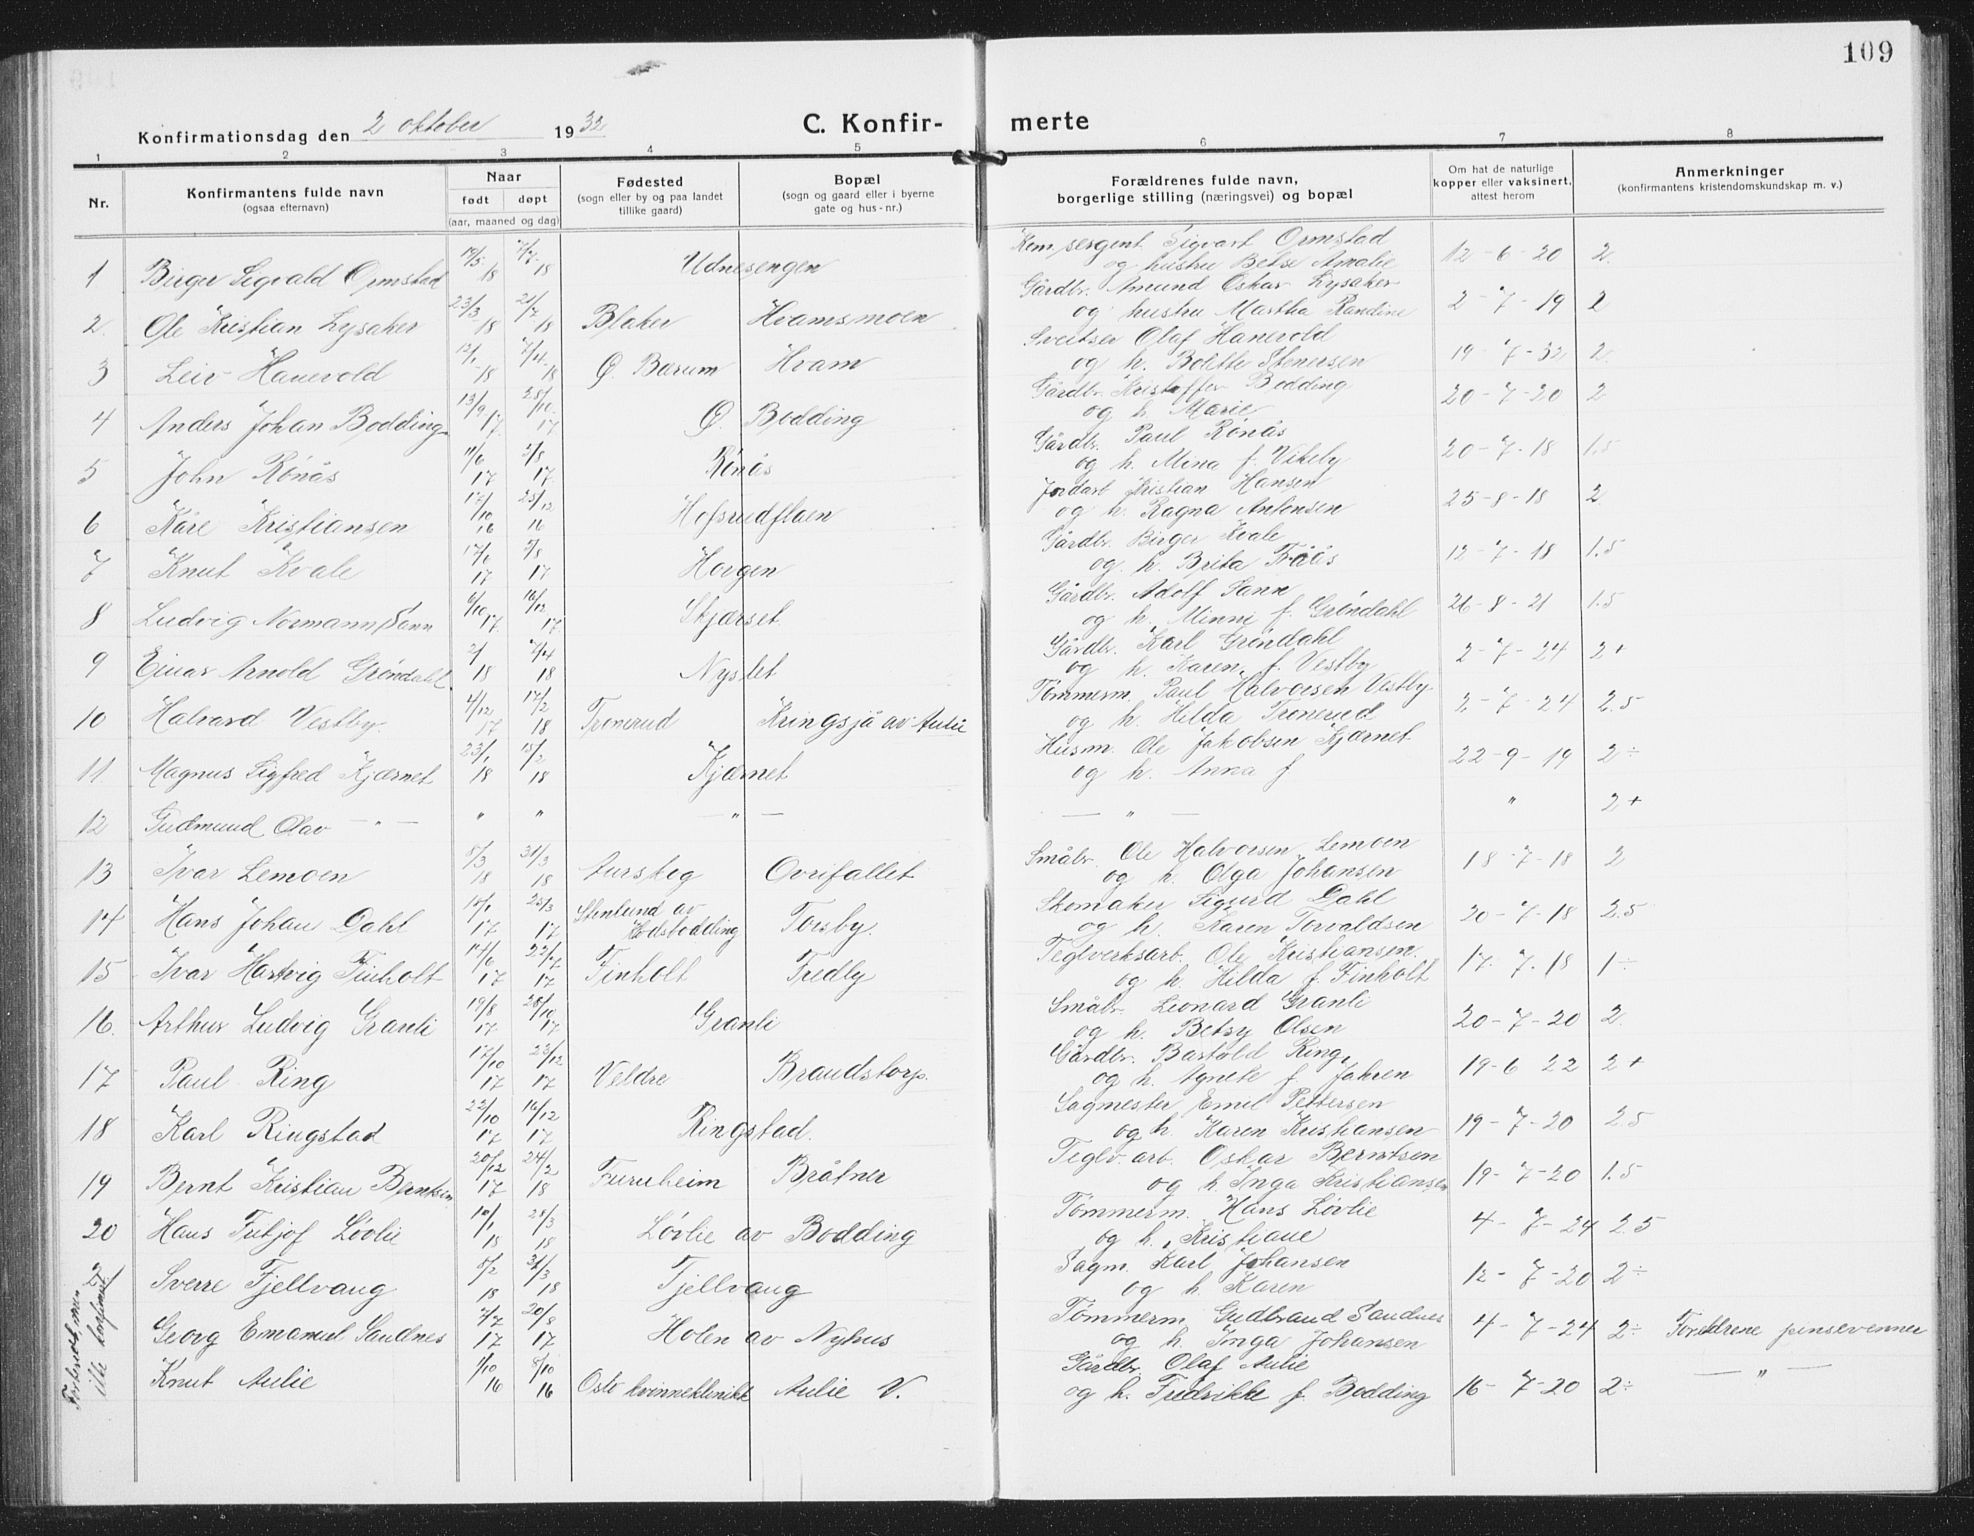 109
Konfirmationsdag den 2 oktober 1932 C. Konfirmerte
1 2 3 4 5 6 7 8
Nr.
Konfirmantens fulde navn
(ogsaa efternavn)
Naar
født døpt
(aar, maaned og dag)
Fødested
(sogn eller by og paa landet
tillike gaard)
Bopæl
(sogn og gaard eller i byerne
gate og hus-nr.)
Forældrenes fulde navn,
borgerlige stilling (næringsvei) og bopæl
Om hat de naturlige
kopper eller vaksinert,
attest herom
Anmerkninger
(konfirmantens kristendomskundskap m. v.)
1 Birger Sigvald Ormstad 18 18 Udnesengen sergent Sigvart Ormstad 12-6-20 2.
og hustru Betse Amalie
2. Ole Kristian Lysaker 23/3 18 21/7 18 Blaker Hvamsmoen Gårdbr. Amund Oskar Lysaker 2-7-19 2
og hustru Martha Randine
3 Leiv Hanevold 12/1 18 7/4 18 Ø. Bærum Hvam Sveitser Olaf Hanevold 19-7-32 2.
og h. Bolette Stenersen
4 Anders Johan Bodding 13/9 17. 28/10 17 Ø. Bodding Gårdbr. Kristoffer Bodding 20-7-20 2
og h. Marie
5 John Rönås 11/6 17 5/8 17 Rönås Gårdbr. Paul Rönås 20-7-18 1.5
og h. Mina f. Vikeby
6 Kåre Kristiansen 17/10 16 25/12 16 Hofsrudfløen Jordarb. Kristian Hansen 25-8-18 2
og h. Ragna Antonsen
7 Knut Kvale 17/6 17 5/8 17 Horgen Gårdbr. Birger Kvale 12-7-18 1.5
og. h. Brita Tråås
8 Ludvig Normann Sann 6/10 17. 16/12 17. Skjærset Gårdbr. Adolf Sann 26-8-21 1.5
og h. Minni f. Gröndahl
9 Einar Arnold Gröndahl 18 7/4 18 Nyslet Gårdbr. Karl Gröndahl 2-7-24 2+
og h. Karen, f. Vestby
10 Halvard Vestby. 4/12 17 17/2 18 Tronerud Kringsjå av Aulie Tömmerm. Paul Halvorsen Vestby 2-7-24 2.5
og h. Hilda Tronerud
11 Magnus Sigfred Kjærnet 23/1 18 15/2 18 Kjærnet Husm. Ole Jakobsen Kjærnet 22-9-19 2÷
og h. Anna f
12 Gudmund Olav — " — " " — " — — " — " 2+
13 Ivar Lemoen 8/3 18 31/3 18 Aursteg Ovrifallet Småbr. Ole Halvorsen Lemoen 18-7-18 2
og h. Olga Johansen
14 Hans Johan Dahl 17 25/3 17 Stenlund av Hodsbodding Torsby. Skomaker Sigurd Dahl 20-7-18 2.5
og h. Karen Torvaldsen
15 Ivar Hartvig Finholt 17 22/7 17 Finholt Fredly Teglverksarb. Ole Kristiansen 17-7-18 1÷
og h. Hilda f. Finholt
16. Arthur Ludvig Granli 19/8 17 28/10 17 Granli Småbr. Leonard Granli 20-7-20 2.
og h. Betzy Olsen
17 Paul Ring 17/10 17 23/12 17 Veldre Brandstorp. Gårdbr. Bartold Ring, 19-6 22 2+
og h. Agnete f. Jahren
18 Karl Ringstad 22/10 17 16/12 17 Ringstad. Sagmester Emil Pettersen 19-7-20 2.5
og h. Karen Kristiansen
19 Bernt Kristian Berntsen 20/12 17 24/2 18 Furuheim Bråtner Teglv.arb. Oskar Berntsen 19-7-20 1.5
og h. Inga Kristiansen
20 Hans Fritjof Lövlie 10/1 18 28/3 18 Lövlie av Bodding Tömmerm. Hans Lövlie 4-7-24 2.5
og h. Kristiane
Forberedt, men
ikke konfirmert
Sverre Fjellvang 5/2 18 31/3 18 Fjellvang Sagm. Karl Johansen 12-7-20 2÷
og h. Karen
Georg Emanuel Sandnes 7/7 17 20/8 17 Holen av Nyhus Tömmerm. Gudbrand Sandnes 4-7-24 2÷ Foreldrene pinsevenner
og h. Inga Johansen
Knut Aulie 1/10 16 8/10 16 Oslo kvinneklinikk Aulie V. Gårdbr. Olaf Aulie 16-7-20 2÷ — " —
og h. Fredrikke f. Bodding